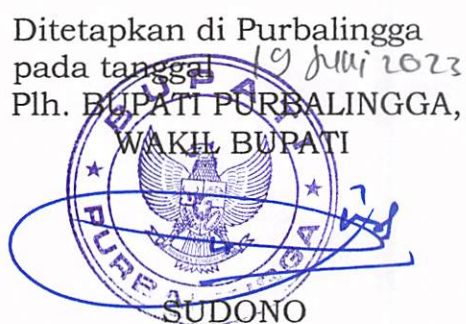 Ditetapkan di Purbalingga
pada tanggal 19 Juni 2023
Plh. BUPATI PURBALINGGA,
WAKIL BUPATI
BUPATI
PURBALINGGA
SUDONO